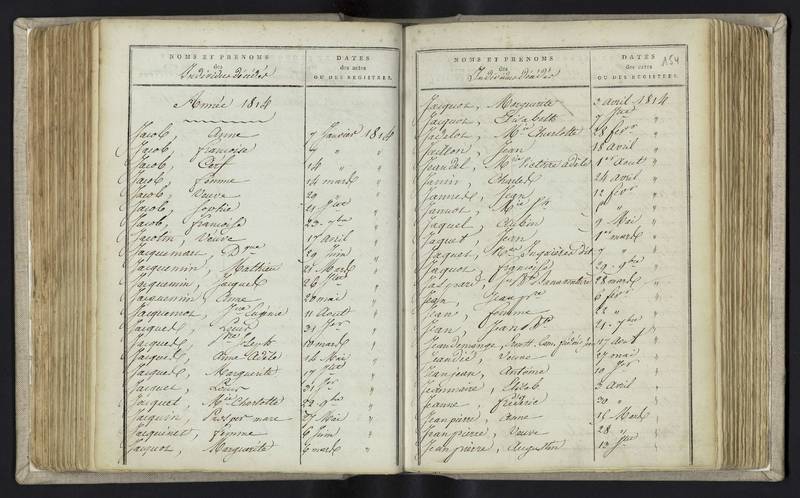 NOMS ET PRENOMS
des
Individus décédés
DATES
des actes
OU DES REGISTRES.
Année 1814
Jacob, Anne 7 Janvier 1814
Jacob, françoise 4 " "
Jacob, Cerf 14 " "
Jacob, femme 14 mars "
Jacob, Veuve 29 " "
Jacob, Sophie 21 "
Jacob, françoise 23 "
Jacotin, Veuve 17 avril "
Jacquemart, Dque 29 Juin "
Jacquemin, Mathieu 25 Mars "
Jacquemin, Jacques 26 "
Jacquemin, Anne 20 mai "
Jacquemot, Eugénie 11 Août "
Jacques, Louis 31 Jer "
Jacques, 18 mars "
Jacques, Anne Adèle 14 Mai "
Jacques, Marguerite 17 "
Jacquet, Louis 31 Jer "
Jacquet, Mie Charlotte 22 9bre "
Jacquin, Prosper marc 27 Mai "
Jacquinet, femme 6 Juin "
Jacquot, Marguerite 6 mars "
NOMS ET PRENOMS
des
Individus décédés
DATES
des actes
OU DES REGISTRES.
154
Jacquot, Marguerite 3 avril 1814
Jacquot, Elisabeth 7 "
Jadelot, Mie Charlotte 28 fevr "
Jaillon, Jean 18 avril "
Jeandel, 1er Aout "
Janin, Charles 24 avril "
Jannes, Jean 12 fevr "
Jannot, Mie "
Jaquet, Aubin 9 Mai "
Jaquet, Jean 1er mars "
Jaquet, 7 "
Jaquot, françoise 29 9bre "
Jaspard, Bonaventure 28 mars "
Jean, 6 fevr "
Jean, femme 22 "
Jean, Jean Bte 21 7bre "
Jeandemange, 17 Aout "
Jeandié, Veuve 27 mai "
Jeanjean, Antoine 10 Jer "
Jeanmaire, Elisab 2 avril "
Jeanne, frédéric 30 " "
Jeanpierre, Anne 16 Mars "
Jeanpierre, Veuve 28 "
Jeanpierre, Augustin 13 "